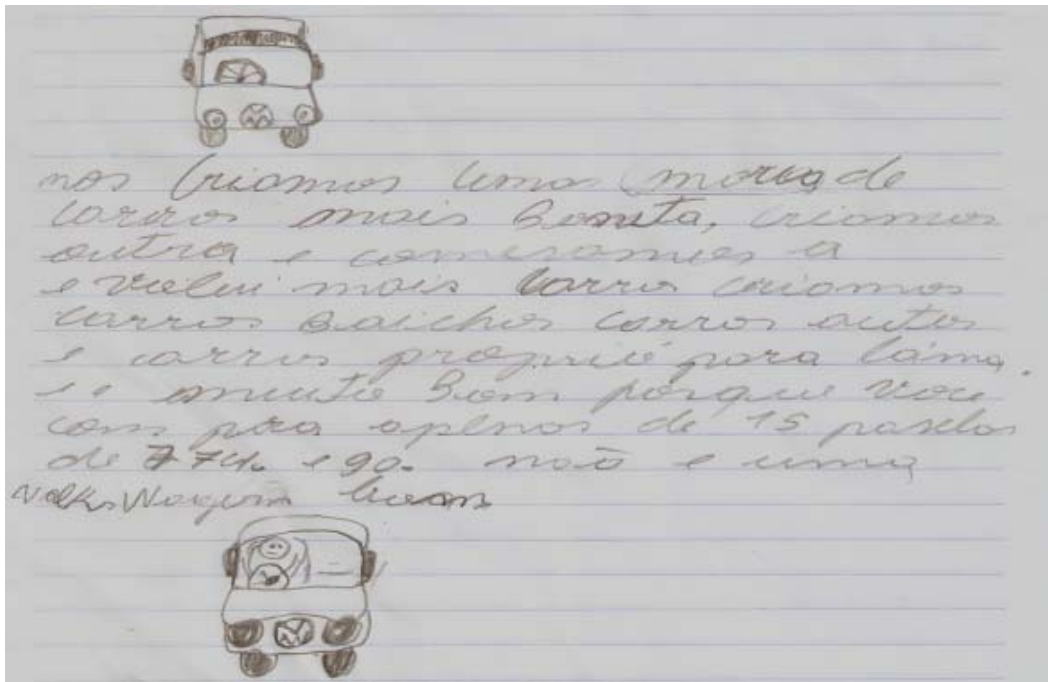 nos Criamos uma marca de
carros mais Bonita, criamos
outra e comesamos a
e volui mais carros criamos
carros Baichos carros autos
e carros propriu para lama.
e muito Bom porque voce
com pra apenas de 15 parselas
de 774. e 90. não e uma
Volks Wagem